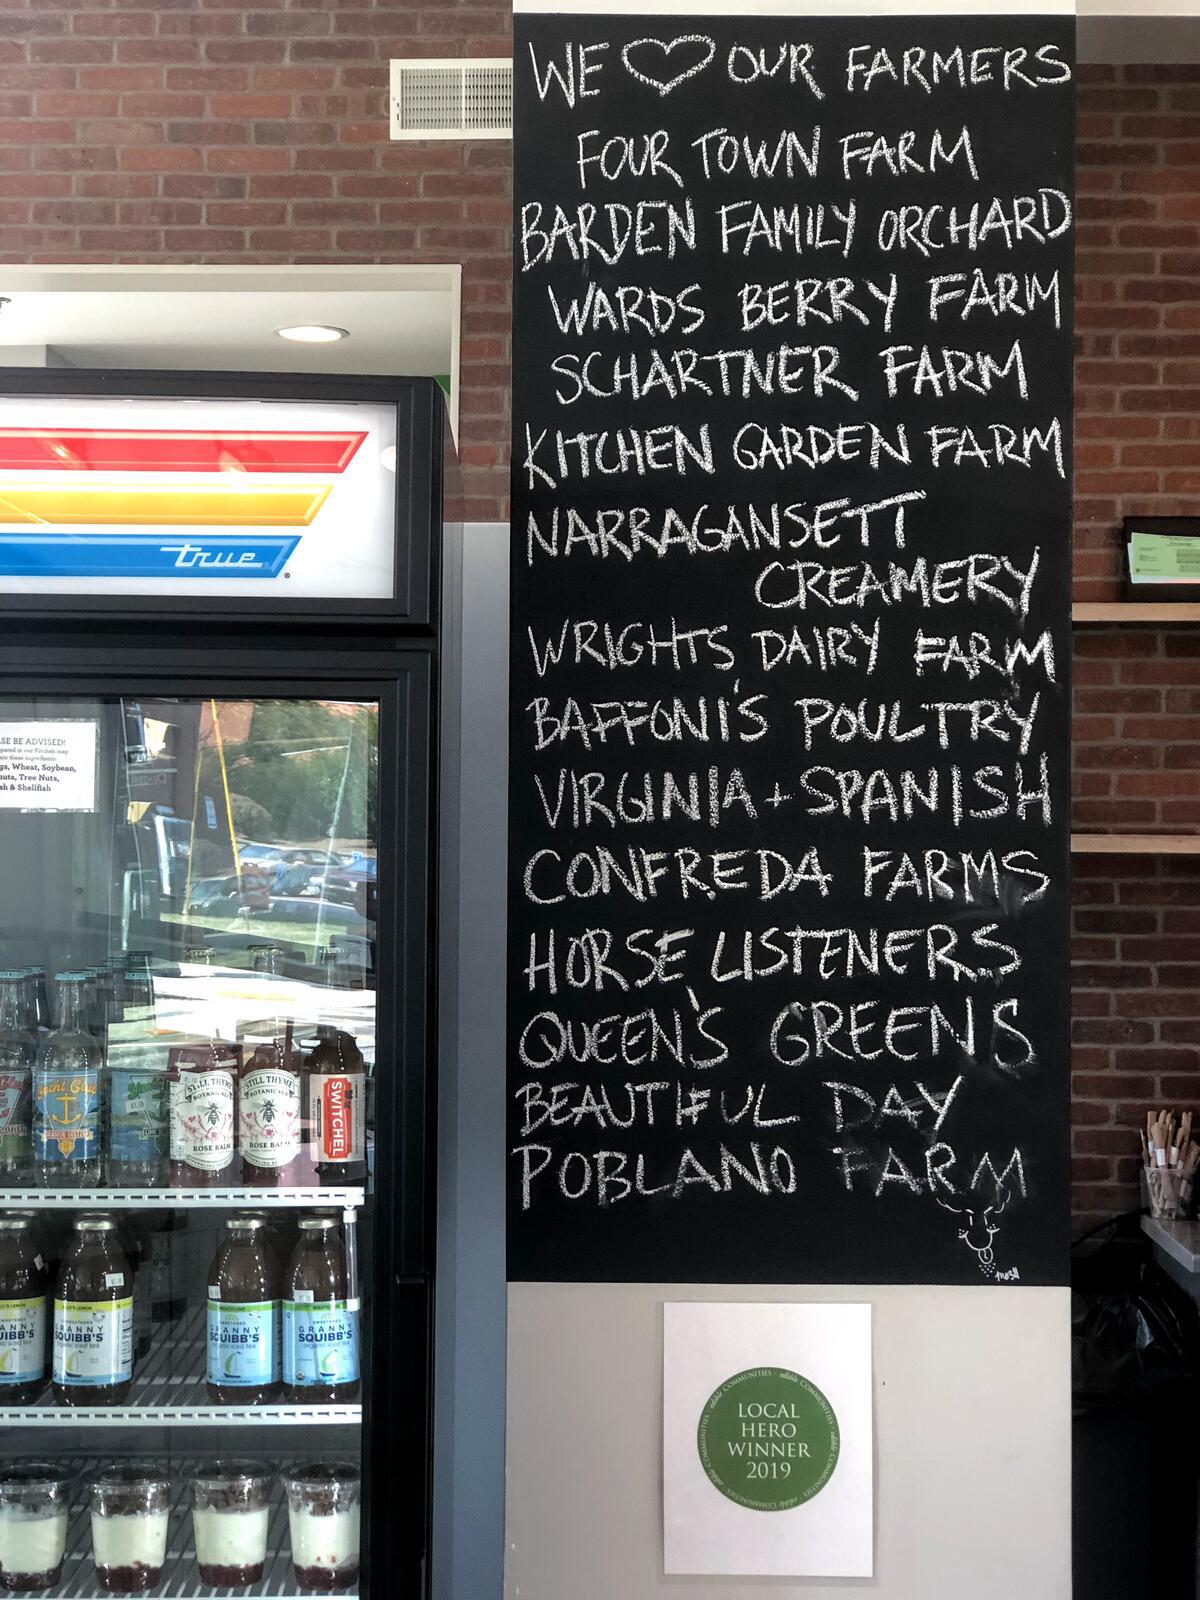 WE ♡ OUR FARMERS
FOUR TOWN FARM
BARDEN FAMILY ORCHARD
WARDS BERRY FARM
SCHARTNER FARM
KITCHEN GARDEN FARM
NARRAGANSETT
CREAMERY
WRIGHTS DAIRY FARM
BAFFONI'S POULTRY
VIRGINIA + SPANISH
CONFREDA FARMS
HORSE LISTENERS
QUEEN'S GREENS
BEAUTIFUL DAY
POBLANO FARM
true
SE BE ADVISED!
in our Kitchen may
these ingredients:
gs, Wheat, Soybean,
nuts, Tree Nuts,
sh & Shellfish
Yacht Club
STILL THYME
BOTANICALS
ROSE BALM
STILL THYME
BOTANICALS
ROSE BALM
SWITCHEL
GRANNY
SQUIBB'S
organic iced tea
GRANNY
SQUIBB'S
organic iced tea
GRANNY
SQUIBB'S
organic iced tea
edible COMMUNITIES · edible COMMUNITIES · edible COMMUNITIES · edible COMMUNITIES
LOCAL
HERO
WINNER
2019